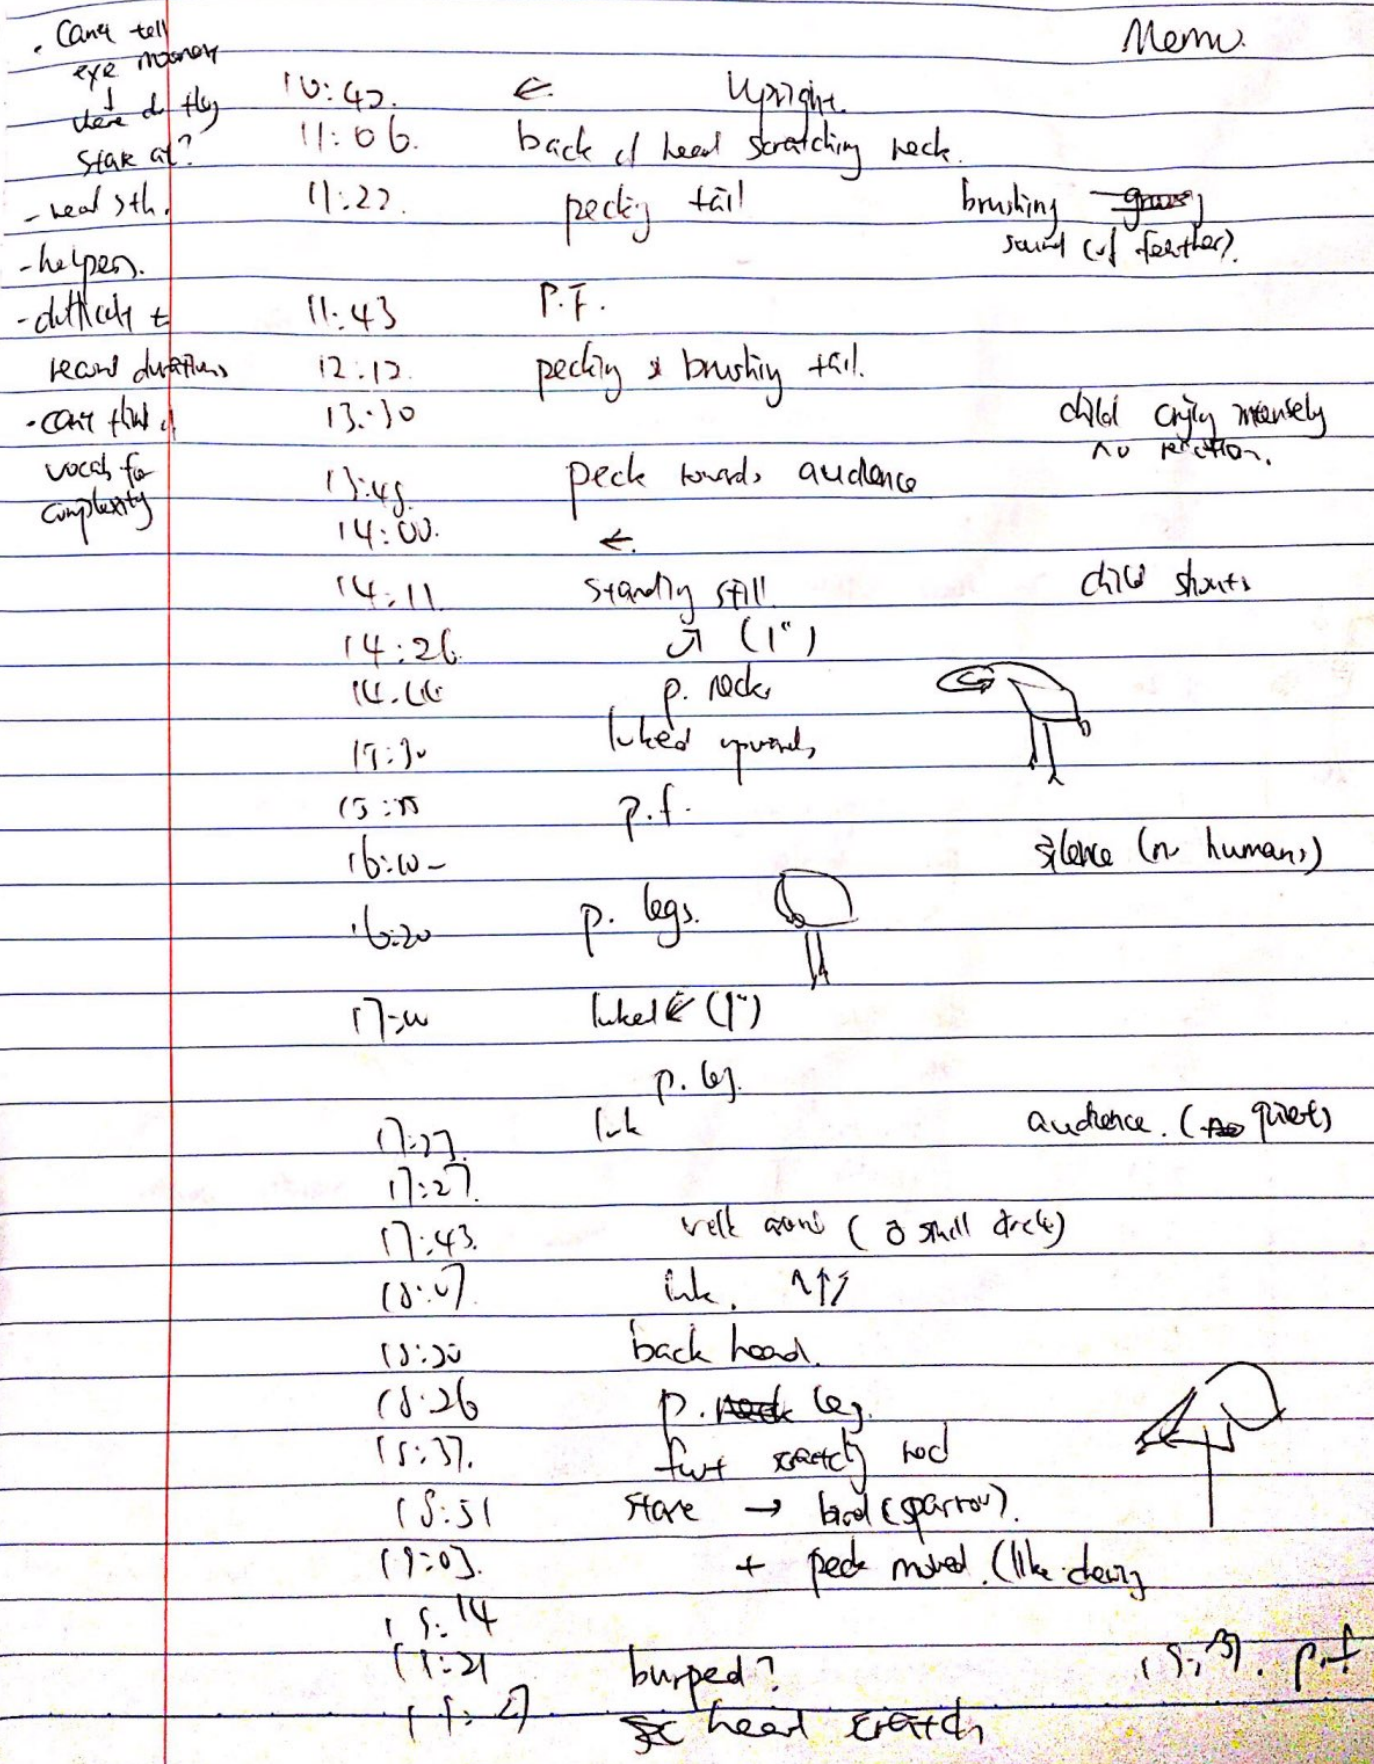 Memo.
. Can't tell
eye
↓
where do they
stare at?
- need sth.
- helpers.
- difficult to
record durations
- can't think of
vocab for
complexity
10:42. ← Upright.
11:06. back of head scratching neck.
11:22. pecking tail brushing
sound (of feather).
11:43 P.F.
12:12. pecking & brushing tail.
13:30 child crying intensely
no reaction.
13:45. peck towards audience
14:00. ←.
14:11. standing still. child shouts
14:26. ↗ (1")
14:44 p. neck
15:30 looked upwards
15: p.f.
16:00 - silence (no humans)
16:20 p. legs.
17:00 looked ↙ (1")
p. leg.
17:27. look audience. (quiet)
17:27.
17:43. walk around (a small circle)
18:07. look. ↖↑↗
18:20 back head.
18:26 p. leg.
18:37. foot scratching
18:51 stare → bird (sparrow).
19:03. + peck moved. (like
19:14
19:21 burped? p.f
19:27 head scratch